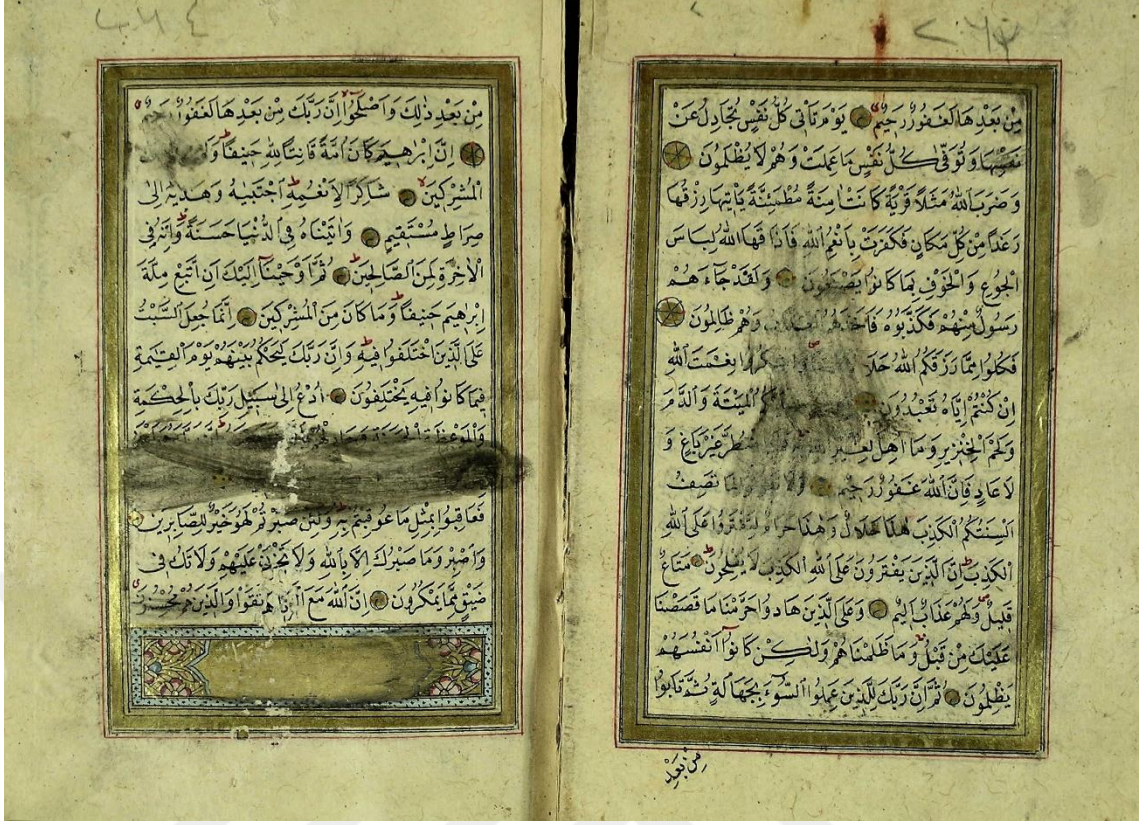 مِنْ بَعْدِهَا لَغَفُورٌ رَحِيمٌ يَوْمَ تَأْتِي كُلُّ نَفْسٍ تُجَادِلُ عَنْ
نَفْسِهَا وَتُوَفّٰى كُلُّ نَفْسٍ مَا عَمِلَتْ وَهُمْ لَا يُظْلَمُونَ
وَضَرَبَ اللّٰهُ مَثَلًا قَرْيَةً كَانَتْ اٰمِنَةً مُطْمَئِنَّةً يَأْتِيهَا رِزْقُهَا
رَغَدًا مِنْ كُلِّ مَكَانٍ فَكَفَرَتْ بِأَنْعُمِ اللّٰهِ فَأَذَاقَهَا اللّٰهُ لِبَاسَ
الْجُوعِ وَالْخَوْفِ بِمَا كَانُوا يَصْنَعُونَ وَلَقَدْ جَاءَهُمْ
رَسُولٌ مِنْهُمْ فَكَذَّبُوهُ فَأَخَذَهُمُ الْعَذَابُ وَهُمْ ظَالِمُونَ
فَكُلُوا مِمَّا رَزَقَكُمُ اللّٰهُ حَلَالًا وَاشْكُرُوا نِعْمَتَ اللّٰهِ
اِنْ كُنْتُمْ اِيَّاهُ تَعْبُدُونَ الْمَيْتَةَ وَالدَّمَ
وَلَحْمَ الْخِنْزِيرِ وَمَا اُهِلَّ لِغَيْرِ اللّٰهِ اضْطُرَّ غَيْرَ بَاغٍ وَ
لَا عَادٍ فَاِنَّ اللّٰهَ غَفُورٌ رَحِيمٌ وَلَا لِمَا تَصِفُ
اَلْسِنَتُكُمُ الْكَذِبَ هٰذَا حَلَالٌ وَهٰذَا حَرَامٌ لِتَفْتَرُوا عَلَى اللّٰهِ
الْكَذِبَ اِنَّ الَّذِينَ يَفْتَرُونَ عَلَى اللّٰهِ الْكَذِبَ لَا يُفْلِحُونَ مَتَاعٌ
قَلِيلٌ وَلَهُمْ عَذَابٌ اَلِيمٌ وَعَلَى الَّذِينَ هَادُوا حَرَّمْنَا مَا قَصَصْنَا
عَلَيْكَ مِنْ قَبْلُ وَمَا ظَلَمْنَاهُمْ وَلٰكِنْ كَانُوا اَنْفُسَهُمْ
يَظْلِمُونَ ثُمَّ اِنَّ رَبَّكَ لِلَّذِينَ عَمِلُوا السُّوءَ بِجَهَالَةٍ ثُمَّ تَابُوا
مِنْ بَعْدِ
مِنْ بَعْدِ ذٰلِكَ وَاَصْلَحُوا اِنَّ رَبَّكَ مِنْ بَعْدِهَا لَغَفُورٌ رَحِيمٌ
اِنَّ اِبْرٰهِيمَ كَانَ اُمَّةً قَانِتًا لِلّٰهِ حَنِيفًا
الْمُشْرِكِينَ شَاكِرًا لِاَنْعُمِهِ اجْتَبٰيهُ وَهَدٰيهُ اِلٰى
صِرَاطٍ مُسْتَقِيمٍ وَاٰتَيْنَاهُ فِي الدُّنْيَا حَسَنَةً وَاِنَّهُ فِي
الْاٰخِرَةِ لَمِنَ الصَّالِحِينَ ثُمَّ اَوْحَيْنَا اِلَيْكَ اَنِ اتَّبِعْ مِلَّةَ
اِبْرٰهِيمَ حَنِيفًا وَمَا كَانَ مِنَ الْمُشْرِكِينَ اِنَّمَا جُعِلَ السَّبْتُ
عَلَى الَّذِينَ اخْتَلَفُوا فِيهِ وَاِنَّ رَبَّكَ لَيَحْكُمُ بَيْنَهُمْ يَوْمَ الْقِيٰمَةِ
فِيمَا كَانُوا فِيهِ يَخْتَلِفُونَ اُدْعُ اِلٰى سَبِيلِ رَبِّكَ بِالْحِكْمَةِ
وَالْمَوْعِظَةِ الْحَسَنَةِ
فَعَاقِبُوا بِمِثْلِ مَا عُوقِبْتُمْ بِهِ وَلَئِنْ صَبَرْتُمْ لَهُوَ خَيْرٌ لِلصَّابِرِينَ
وَاصْبِرْ وَمَا صَبْرُكَ اِلَّا بِاللّٰهِ وَلَا تَحْزَنْ عَلَيْهِمْ وَلَا تَكُ فِي
ضَيْقٍ مِمَّا يَمْكُرُونَ اِنَّ اللّٰهَ مَعَ الَّذِينَ اتَّقَوْا وَالَّذِينَ هُمْ مُحْسِنُونَ